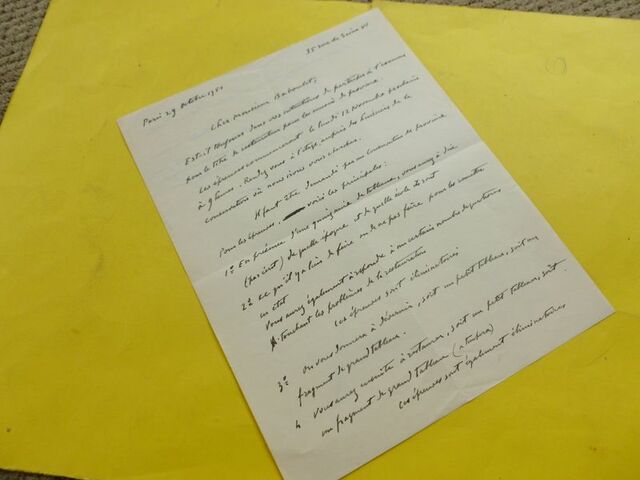 35 rue de Seine VI
Paris 29 octobre 1951
Cher Monsieur Baboulet,
Est-il toujours dans vos intentions de prétendre à l'examen
pour le titre de restaurateur pour les musées de province.
Les épreuves commenceront le lundi 12 Novembre prochain
à 9 heures. Rendez vous à l'étage, auprès des bureaux de la
conservation où nous irons vous chercher.
Il faut être demandé par un Conservateur de province
Pour les épreuves, voici les principales:
1º En présence d'une quinzaine de tableaux, vous aurez à dire
(par écrit) de quelle époque et de quelle école ils sont
2º ce qu'il y a lieu de faire ou de ne pas faire pour les remettre
en état
Vous aurez également à répondre à un certain nombre de questions
touchant les problèmes de la restauration
Ces épreuves sont éliminatoires.
3º On vous donnera à dévernir, soit un petit tableau, soit un
fragment de grand tableau.
4 Vous aurez ensuite à restaurer, soit un petit tableau, soit
un fragment de grand tableau (a tempera)
Ces épreuves sont également éliminatoires